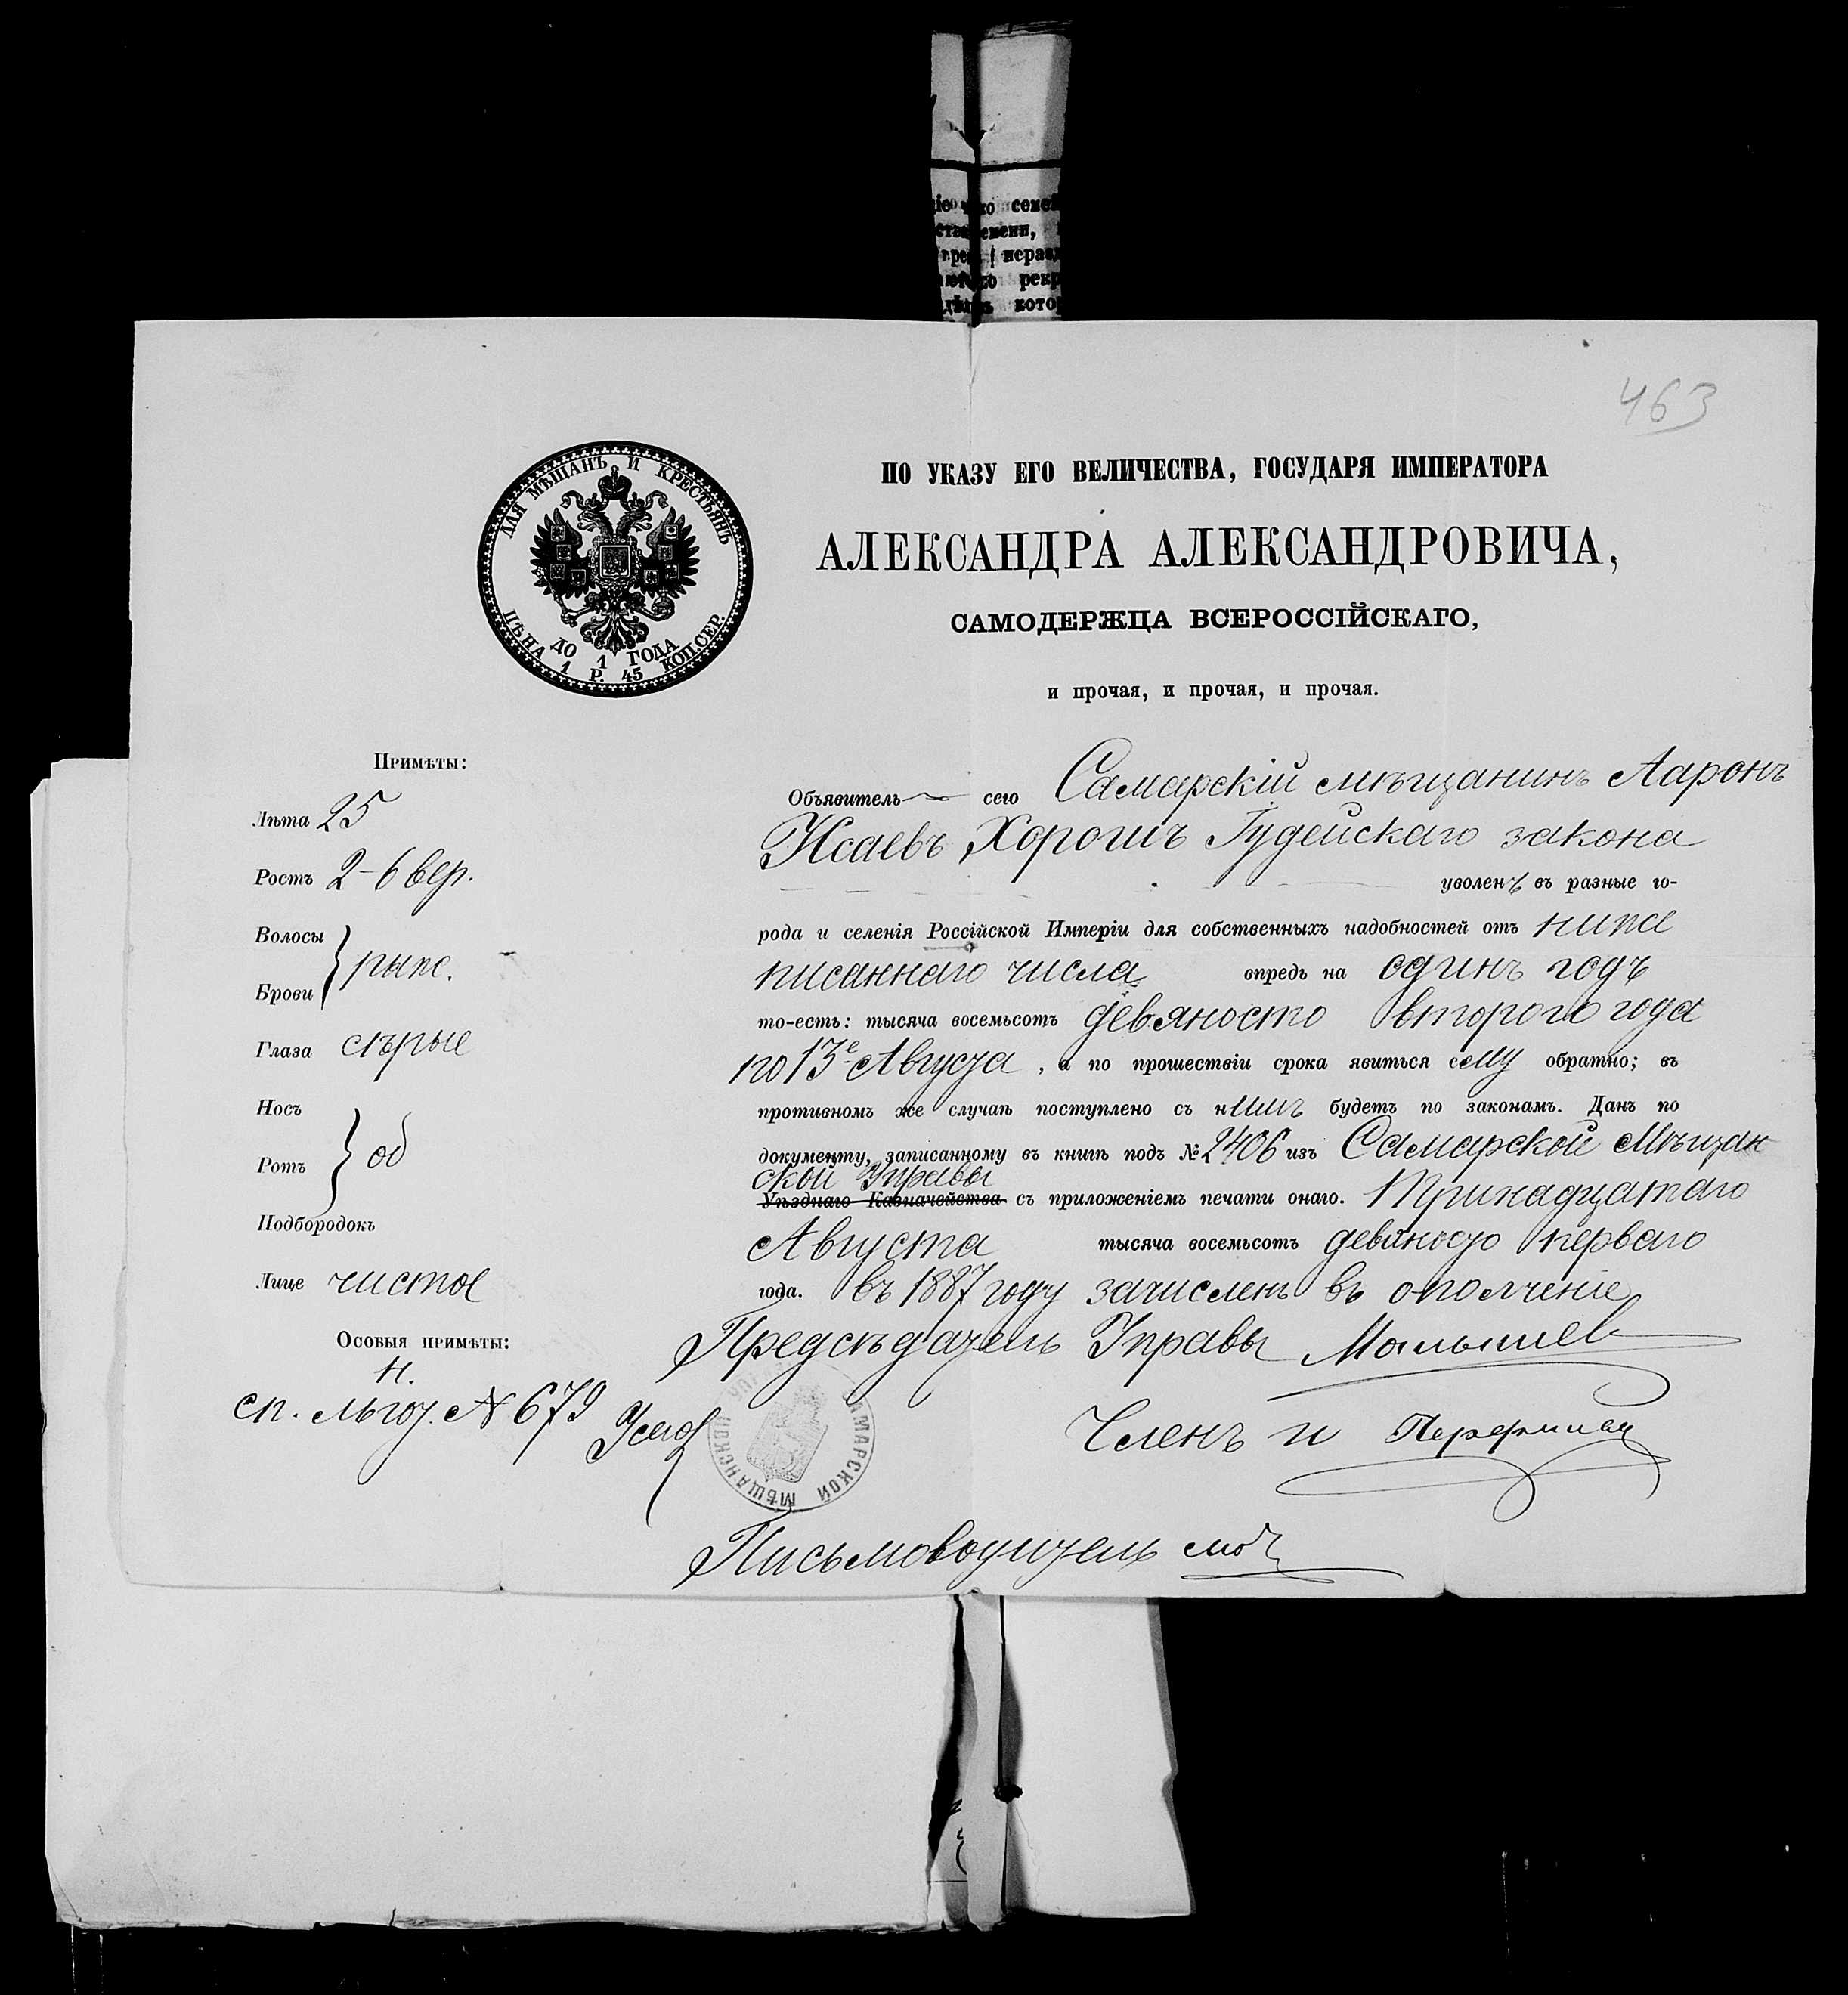 іе ко семей
ства емени,
вре исрав
рекр
кото
463
ДЛЯ МѢЩАНЪ И КРЕСТЬЯНЪ
ДО 1 ГОДА
ЦѢНА 1 Р. 45 КОП.СЕР.
ПО УКАЗУ ЕГО ВЕЛИЧЕСТВА, ГОСУДАРЯ ИМПЕРАТОРА
АЛЕКСАНДРА АЛЕКСАНДРОВИЧА,
САМОДЕРЖЦА ВСЕРОССІЙСКАГО,
и прочая, и прочая, и прочая.
Примѣты:
Лѣта 25
Ростъ 2-6 вер.
Волосы
Брови } рыж.
Глаза сѣрые
Носъ
Ротъ } об
Подбородокъ
Лице чистое
Особыя примѣты:
Н.
сп. льгот. № 679
Объявитель сего Самарскій мѣщанинъ Ааронъ
Исаевъ Хорошъ Іудейскаго закона
уволенъ въ разные го-
рода и селенія Россійской Имперіи для собственныхъ надобностей отъ ниже
писаннаго числа впредь на одинъ годъ
то-есть: тысяча восемьсотъ девяносто второго года
по 13е Августа, а по прошествіи срока явиться сему обратно; въ
противномъ же случаѣ поступлено съ нимъ будетъ по законамъ. Данъ по
документу, записанному въ книгѣ подъ № 2406 изъ Самарской Мѣщан
ской Управы
Уѣзднаго Казначейства съ приложеніемъ печати онаго. Тринадцатаго
Августа тысяча восемьсотъ девяносто перваго
года. въ 1887 году зачисленъ въ ополченіе
Предсѣдатель Управы Малышев
САМАРСКОЙ МѢЩАНСКОЙ УПРАВЫ
Членъ
Письмоводитель